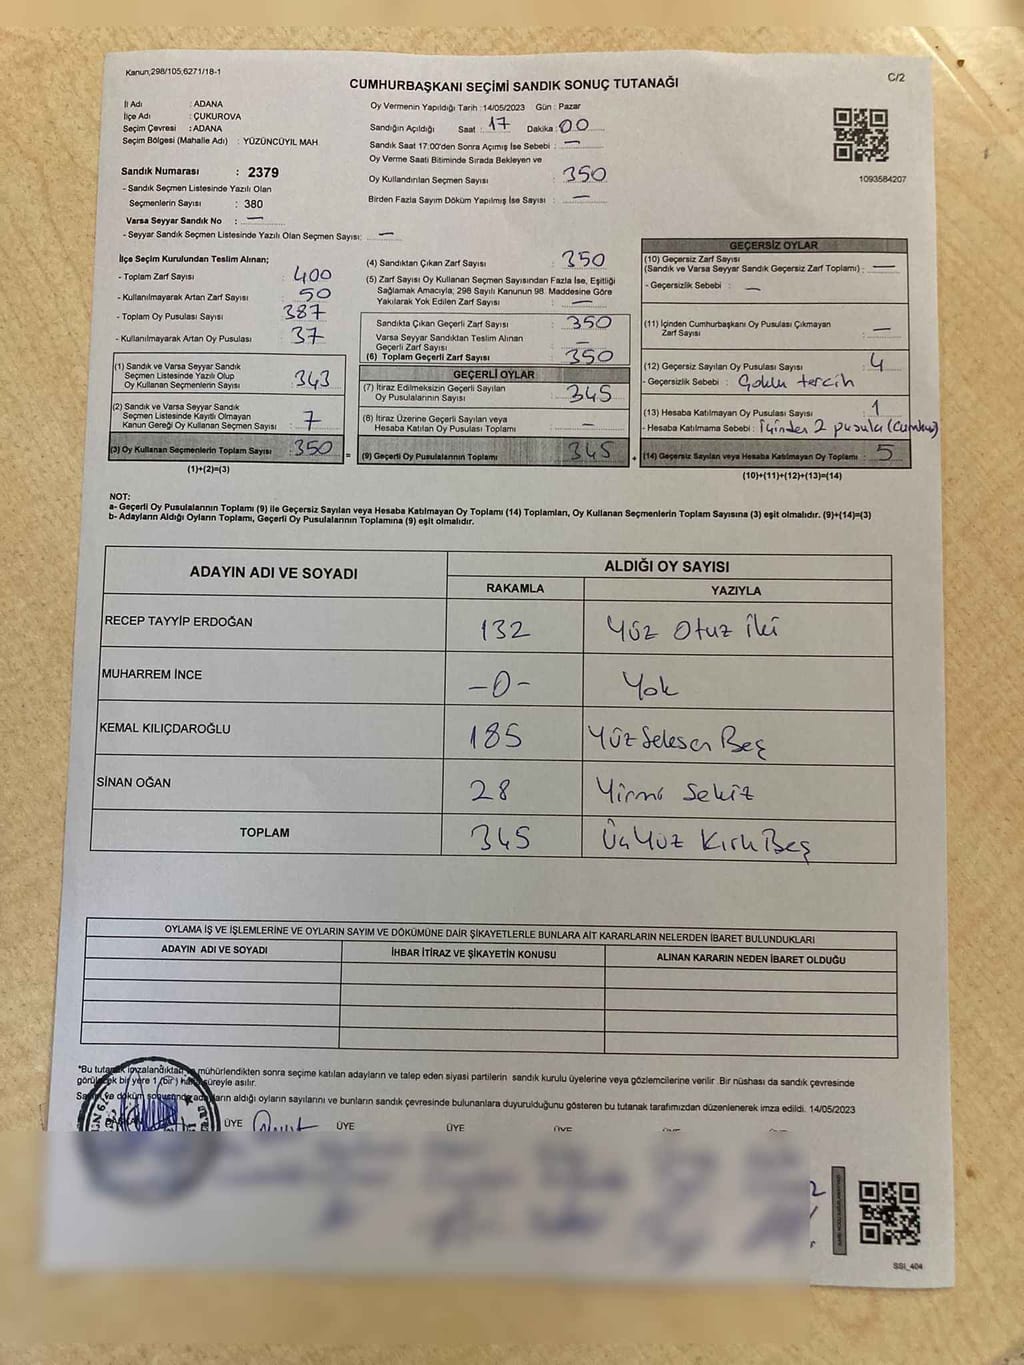 Kanun;298/105;6271/18-1
CUMHURBAŞKANI SEÇİMİ SANDIK SONUÇ TUTANAĞI
C/2
İl Adı : ADANA
İlçe Adı : ÇUKUROVA
Seçim Çevresi : ADANA
Seçim Bölgesi (Mahalle Adı) : YÜZÜNCÜYIL MAH
Sandık Numarası : 2379
- Sandık Seçmen Listesinde Yazılı Olan
Seçmenlerin Sayısı : 380
Varsa Seyyar Sandık No : —
- Seyyar Sandık Seçmen Listesinde Yazılı Olan Seçmen Sayısı: —
Oy Vermenin Yapıldığı Tarih : 14/05/2023 Gün : Pazar
Sandığın Açıldığı Saat : 17 Dakika : 00
Sandık Saat 17:00'den Sonra Açımış İse Sebebi : —
Oy Verme Saati Bitiminde Sırada Bekleyen ve
Oy Kullandırılan Seçmen Sayısı : 350
Birden Fazla Sayım Döküm Yapılmış İse Sayısı : —
1093584207
İlçe Seçim Kurulundan Teslim Alınan;
- Toplam Zarf Sayısı : 400
- Kullanılmayarak Artan Zarf Sayısı : 50
- Toplam Oy Pusulası Sayısı : 387
- Kullanılmayarak Artan Oy Pusulası : 37
(1) Sandık ve Varsa Seyyar Sandık
Seçmen Listesinde Yazılı Olup
Oy Kullanan Seçmenlerin Sayısı : 343
(2) Sandık ve Varsa Seyyar Sandık
Seçmen Listesinde Kayıtlı Olmayan
Kanun Gereği Oy Kullanan Seçmen Sayısı : 7
(3) Oy Kullanan Seçmenlerin Toplam Sayısı : 350
(1)+(2)=(3)
(4) Sandıktan Çıkan Zarf Sayısı : 350
(5) Zarf Sayısı Oy Kullanan Seçmen Sayısından Fazla İse, Eşitliği
Sağlamak Amacıyla; 298 Sayılı Kanunun 98. Maddesine Göre
Yakılarak Yok Edilen Zarf Sayısı : —
Sandıkta Çıkan Geçerli Zarf Sayısı : 350
Varsa Seyyar Sandıktan Teslim Alınan
Geçerli Zarf Sayısı : —
(6) Toplam Geçerli Zarf Sayısı : 350
GEÇERLİ OYLAR
(7) İtiraz Edilmeksizin Geçerli Sayılan
Oy Pusulalarının Sayısı : 345
(8) İtiraz Üzerine Geçerli Sayılan veya
Hesaba Katılan Oy Pusulası Toplamı : —
= (9) Geçerli Oy Pusulalarının Toplamı : 345 +
GEÇERSİZ OYLAR
(10) Geçersiz Zarf Sayısı
(Sandık ve Varsa Seyyar Sandık Geçersiz Zarf Toplamı) : —
- Geçersizlik Sebebi : —
(11) İçinden Cumhurbaşkanı Oy Pusulası Çıkmayan
Zarf Sayısı : —
(12) Geçersiz Sayılan Oy Pusulası Sayısı : 4
- Geçersizlik Sebebi : Çoklu tercih
(13) Hesaba Katılmayan Oy Pusulası Sayısı : 1
- Hesaba Katılmama Sebebi : İçinden 2 pusula
(14) Geçersiz Sayılan veya Hesaba Katılmayan Oy Toplamı : 5
(10)+(11)+(12)+(13)=(14)
NOT:
a- Geçerli Oy Pusulalarının Toplamı (9) ile Geçersiz Sayılan veya Hesaba Katılmayan Oy Toplamı (14) Toplamları, Oy Kullanan Seçmenlerin Toplam Sayısına (3) eşit olmalıdır. (9)+(14)=(3)
b- Adayların Aldığı Oyların Toplamı, Geçerli Oy Pusulalarının Toplamına (9) eşit olmalıdır.
ADAYIN ADI VE SOYADI ALDIĞI OY SAYISI
RAKAMLA YAZIYLA
RECEP TAYYİP ERDOĞAN 132 Yüz Otuz İki
MUHARREM İNCE -0- Yok
KEMAL KILIÇDAROĞLU 185 Yüz Seksen Beş
SİNAN OĞAN 28 Yirmi Sekiz
TOPLAM 345 Üç Yüz Kırk Beş
OYLAMA İŞ VE İŞLEMLERİNE VE OYLARIN SAYIM VE DÖKÜMÜNE DAİR ŞİKAYETLERLE BUNLARA AİT KARARLARIN NELERDEN İBARET BULUNDUKLARI
ADAYIN ADI VE SOYADI İHBAR İTİRAZ VE ŞİKAYETİN KONUSU ALINAN KARARIN NEDEN İBARET OLDUĞU
*Bu tutanak imzalandıktan ve mühürlendikten sonra seçime katılan adayların ve talep eden siyasi partilerin sandık kurulu üyelerine veya gözlemcilerine verilir .Bir nüshası da sandık çevresinde
görülecek bir yere 1 (bir ) hafta süreyle asılır.
Sayım ve döküm sonucunda adayların aldığı oyların sayılarını ve bunların sandık çevresinde bulunanlara duyurulduğunu gösteren bu tutanak tarafımızdan düzenlenerek imza edildi. 14/05/2023
ÜYE ÜYE ÜYE ÜYE
SSI_404